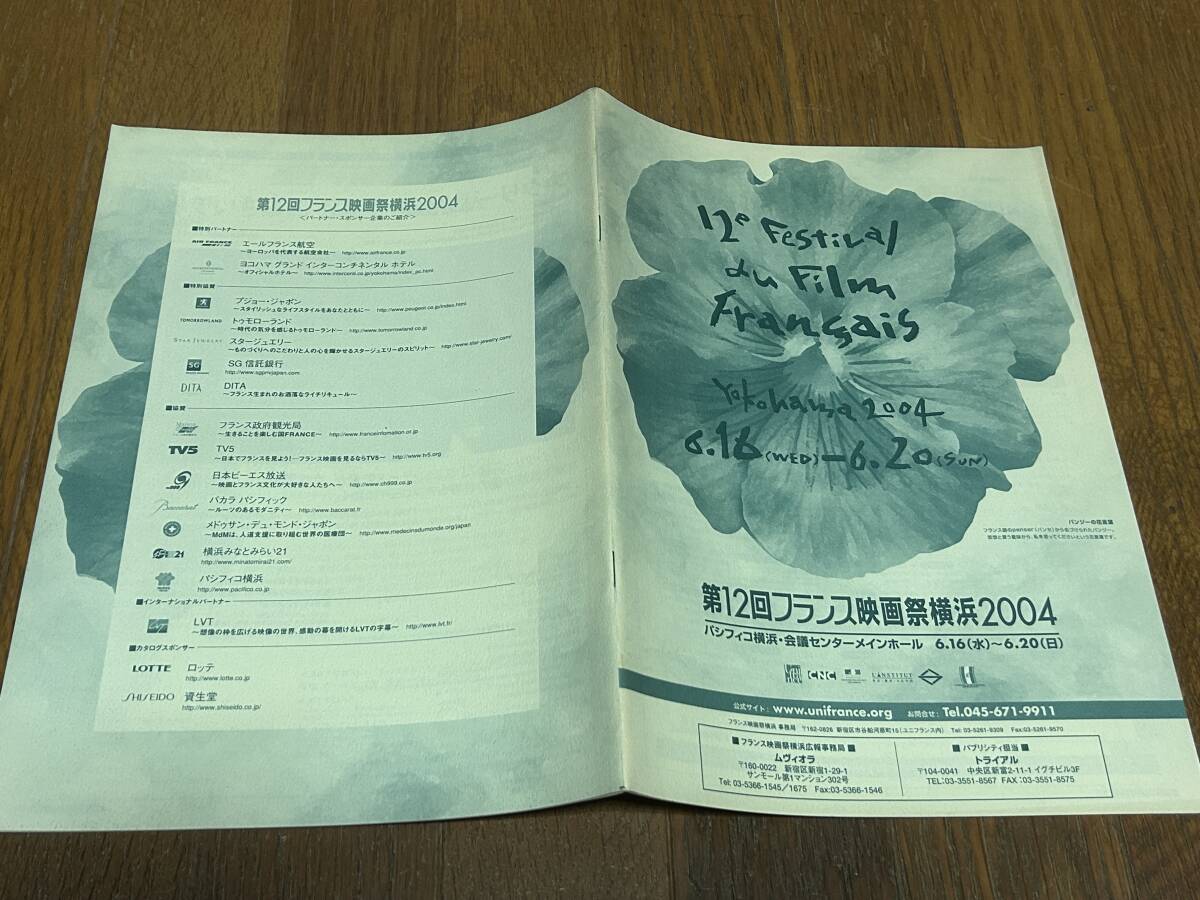 第12回フランス映画祭横浜2004
＜パートナー・スポンサー企業のご紹介＞
■特別パートナー
AIR FRANCE
エールフランス航空
～ヨーロッパを代表する航空会社～ http://www.airfrance.co.jp
ヨコハマ グランド インターコンチネンタル ホテル
～オフィシャルホテル～ http://www.interconti.co.jp/yokohama/index_pc.html
■特別協賛
プジョー・ジャポン
～スタイリッシュなライフスタイルをあなたとともに～ http://www.peugeot.co.jp/index.html
TOMORROWLAND
トゥモローランド
～時代の気分を感じるトゥモローランド～ http://www.tomorrowland.co.jp
STAR JEWELRY
スタージュエリー
～ものづくりへのこだわりと人の心を輝かせるスタージュエリーのスピリット～ http://www.star-jewelry.com/
SG
SG 信託銀行
http://www.sgpmjapan.com
DITA
DITA
～フランス生まれのお洒落なライチリキュール～
■協賛
フランス政府観光局
～生きることを楽しむ国FRANCE～ http://www.franceinfomation.or.jp
TV5
TV5
～日本でフランスを見よう!―フランス映画を見るならTV5～ http://www.tv5.org
日本ビーエス放送
～映画とフランス文化が大好きな人たちへ～ http://www.ch999.co.jp
Baccarat
バカラ パシフィック
～ルーツのあるモダニティ～ http://www.baccarat.fr
メドゥサン・デュ・モンド・ジャポン
～MdMは、人道支援に取り組む世界の医療団～ http://www.medecinsdumonde.org/japan
横浜みなとみらい21
http://www.minatomirai21.com/
パシフィコ横浜
http://www.pacifico.co.jp
■インターナショナルパートナー
LVT
～想像の枠を広げる映像の世界、感動の幕を開けるLVTの字幕～ http://www.lvt.fr/
■カタログスポンサー
LOTTE
ロッテ
http://www.lotte.co.jp
SHISEIDO
資生堂
http://www.shiseido.co.jp/
12e Festival
du Film
Français
Yokohama 2004
6.16(WED)–6.20(SUN)
パンジーの花言葉
フランス語のpenser(パンセ)から名づけられたパンジー。
思想と言う意味から、私を思ってくださいという花言葉です。
第12回フランス映画祭横浜2004
パシフィコ横浜・会議センターメインホール 6.16(水)～6.20(日)
CNC
L'INSTITUT
公式サイト: www.unifrance.org お問合せ: Tel.045-671-9911
フランス映画祭横浜 事務局 〒162-0826 新宿区市谷船河原町15(ユニフランス内) Tel: 03-5261-9309 Fax:03-5261-9570
■フランス映画祭横浜広報事務局■
ムヴィオラ
〒160-0022 新宿区新宿1-29-1
サンモール第1マンション302号
Tel: 03-5366-1545/1675 Fax:03-5366-1546
■パブリシティ担当■
トライアル
〒104-0041 中央区新富2-11-1 イグチビル3F
TEL:03-3551-8567 FAX:03-3551-8575